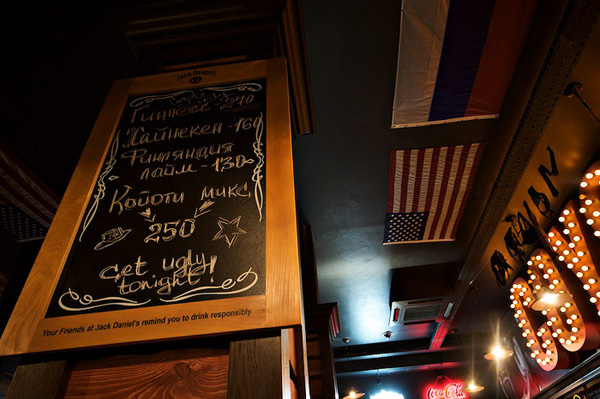 JACK DANIEL'S
Гиннесс - 240
Хайнекен - 160
Финляндия
лайм - 130
Койоти микс
250
Get ugly
tonight!
Your Friends at Jack Daniel's remind you to drink responsibly.
Coca-Cola